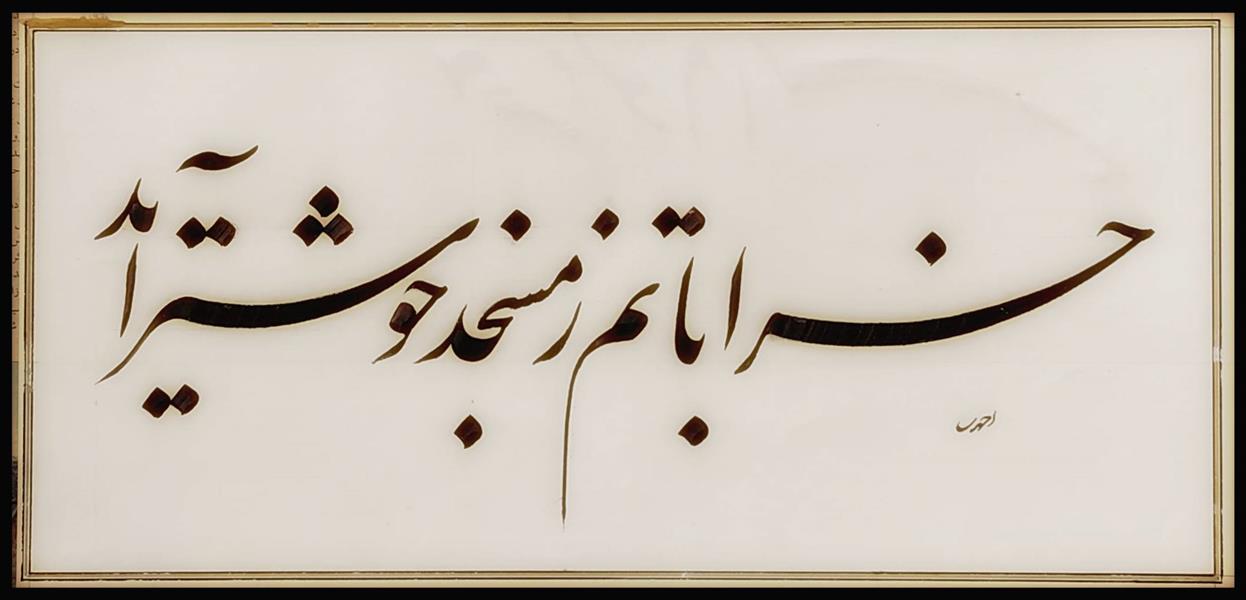 خراباتم ز مسجد خوشتر آید